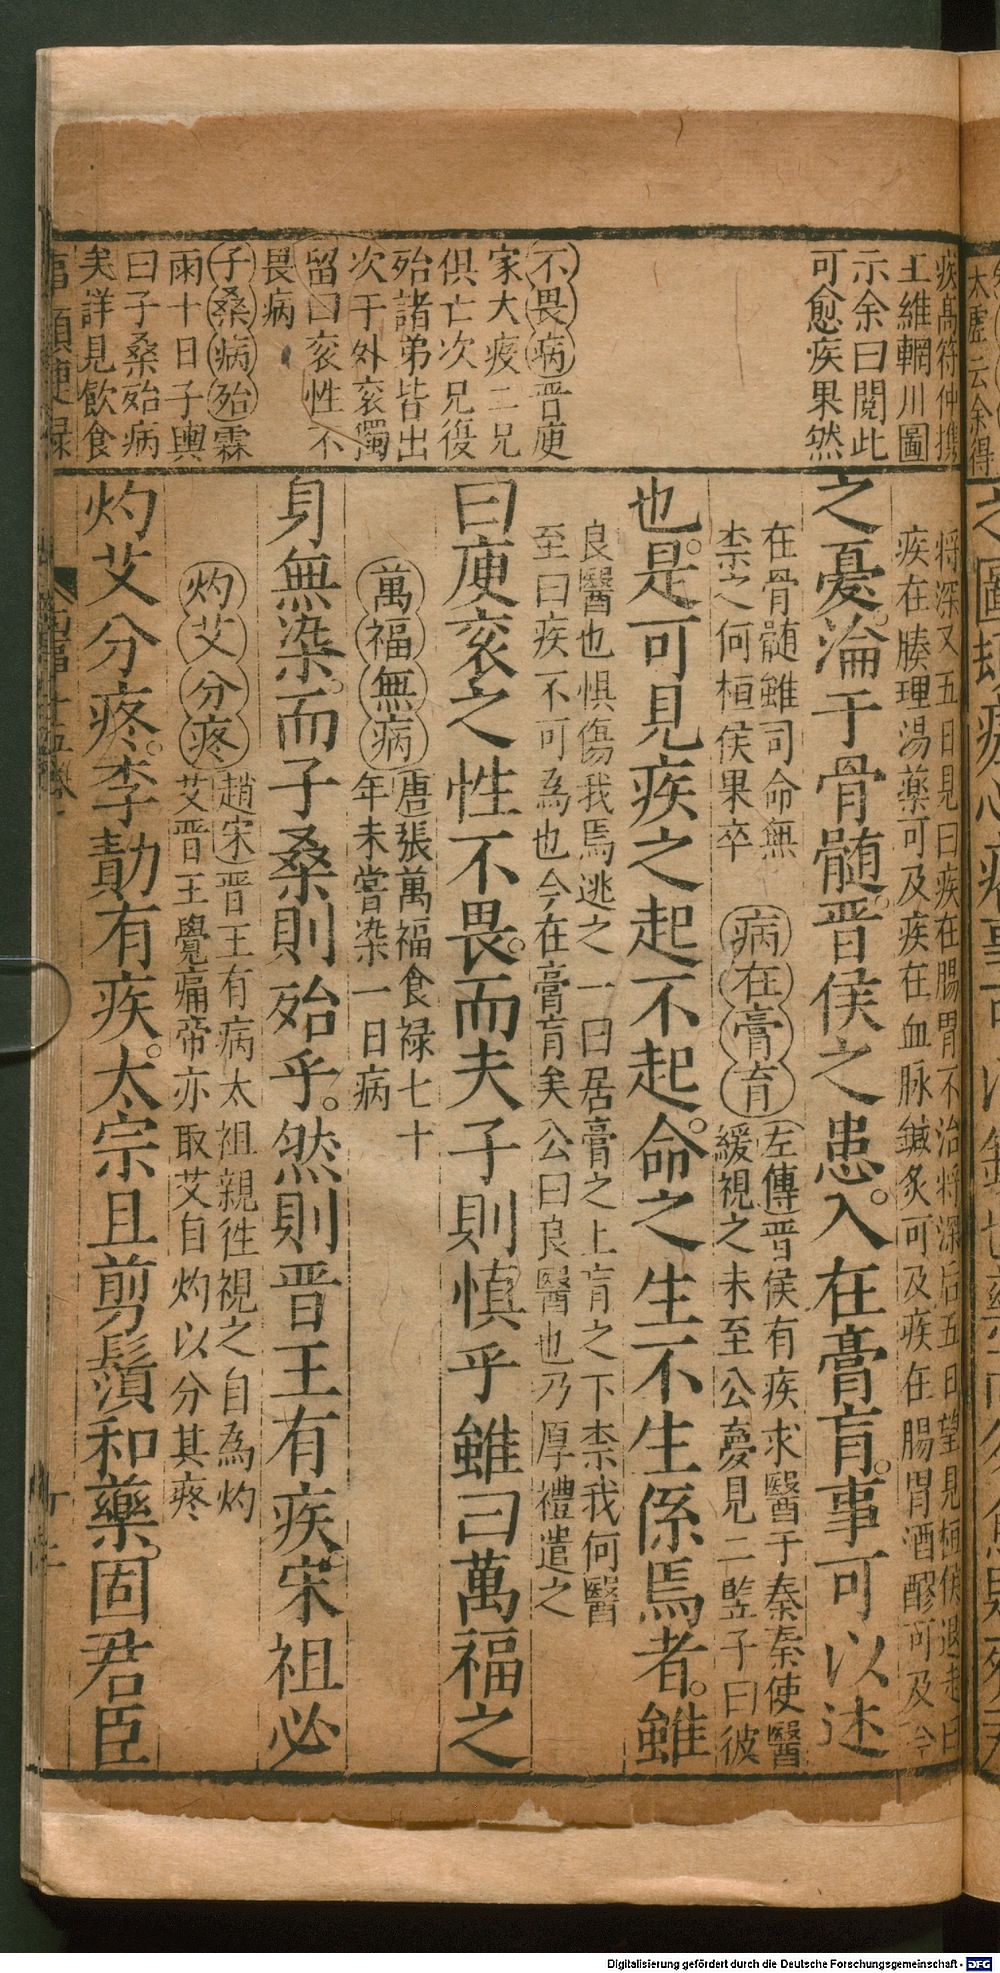 疾髙符仲携
王維輞川圖
示余曰閲此
可愈疾果然
不畏病晋庾
家大疫二兄
俱亡次兄復
殆諸弟皆出
次于外衮獨
留曰衮性不
畏病
子桑病殆霖
雨十日子輿
曰子桑殆病
矣詳見飲食
将深又五日見曰疾在腸胃不治将深后五日望見桓侯退走曰
疾在腠理湯藥可及疾在血脉鍼炙可及疾在腸胃酒醪可及今
之憂。淪于骨髄。晋侯之患。入在膏肓。事可以述
在骨髄雖司命無
柰之何桓侯果卒
病在膏肓
左傳晋侯有疾求醫于秦秦使醫
緩視之未至公夣見二竪子曰彼
也。是可見疾之起不起。命之生不生係焉者。雖
良醫也惧傷我焉逃之一曰居膏之上肓之下柰我何醫
至曰疾不可為也今在膏肓矣公曰良醫也乃厚禮遣之
曰庾衮之性不畏。而夫子則慎乎雖曰萬福之
萬福無病
唐張萬福食禄七十
年未嘗染一日病
身無染。而子桑則殆乎。然則晋王有疾。宋祖必
灼艾分疼
趙宋晋王有病太祖親徃視之自為灼
艾晋王覺痛帝亦取艾自灼以分其疼
灼艾分疼。李勣有疾。太宗且剪鬚和藥。固君臣
太虚云余得
Digitalisierung gefördert durch die Deutsche Forschungsgemeinschaft - DFG